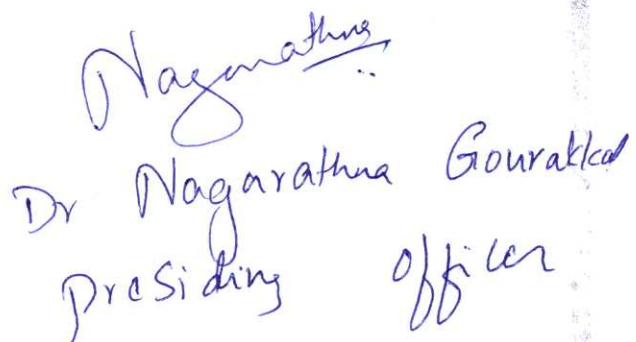 Nagarathna
Dr Nagarathna Gourakkal
presiding officer